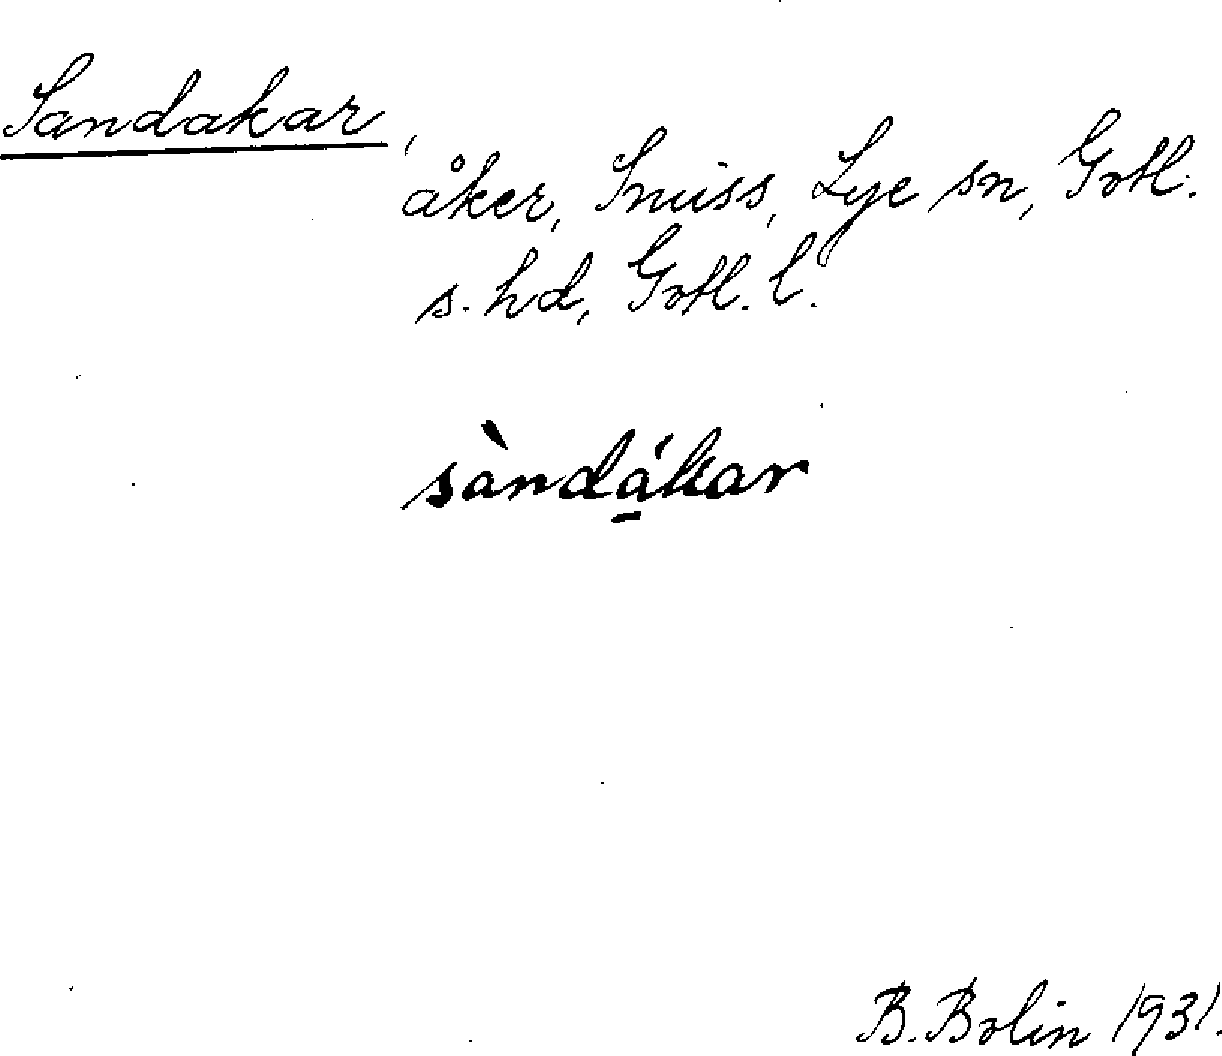 Sandakar,
åker, Snuiss, Lye sn, Gotl.
s. hd, Gotl. l.
sàndá̱kar
B. Bolin 1931.